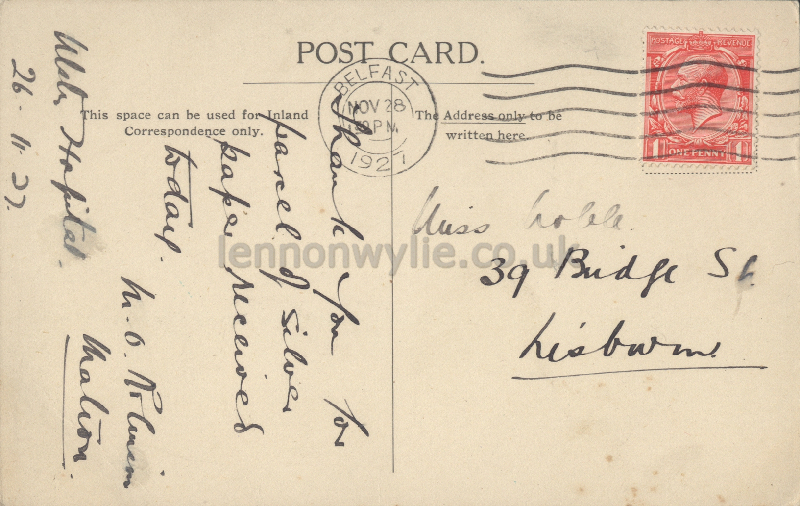 POST CARD.
This space can be used for Inland
Correspondence only.
The Address only to be
written here.
BELFAST
NOV 28
PM
1927
POSTAGE REVENUE
1 ONE PENNY 1
Ulster Hospital.
26-11-27.
Thank you for
parcel of silver
paper received
today.
M. O. Robinson
Matron.
Miss
39 Bridge St
Lisburn
lennonwylie.co.uk